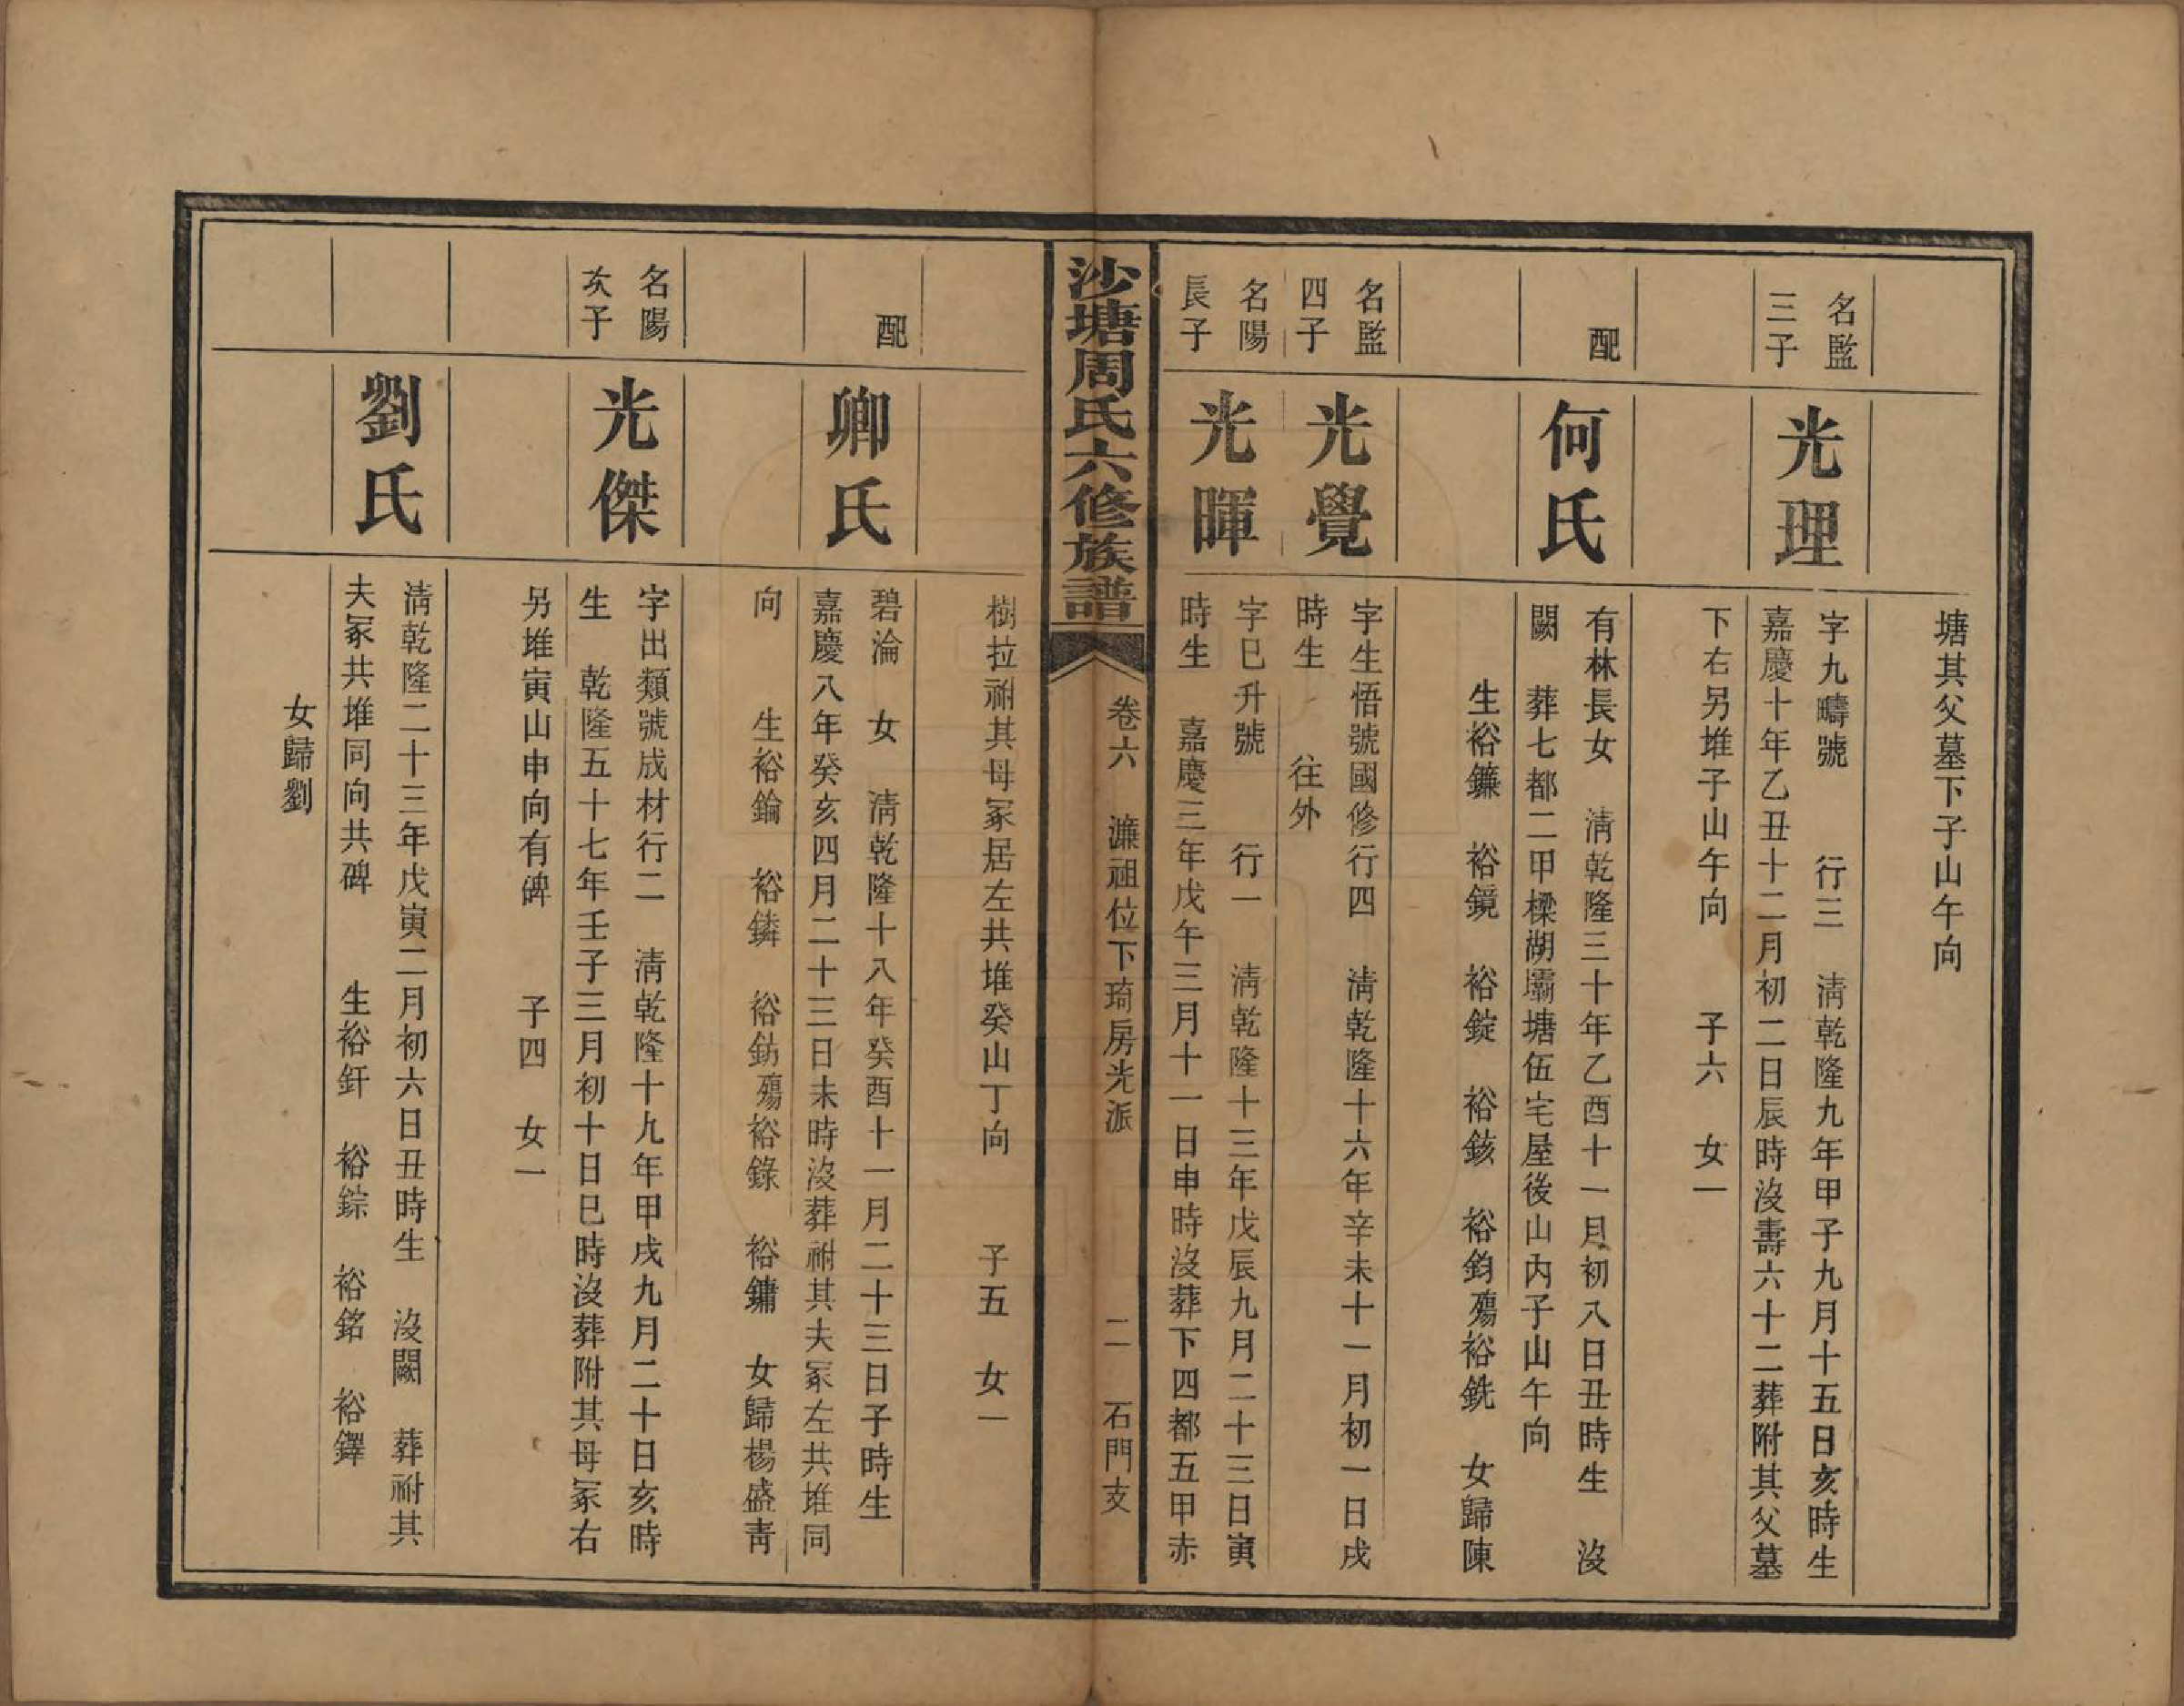 塘其父墓下子山午向
名監
三子
光理
字九疇號　行三　清乾隆九年甲子九月十五日亥時生
嘉慶十年乙丑十二月初二日辰時沒壽六十二葬附其父墓
下右另堆子山午向　子六　女一
配
何氏
有林長女　清乾隆三十年乙酉十一月初八日丑時生　沒
闕　葬七都二甲樑湖壩塘伍宅屋後山內子山午向
生裕鐮　裕鏡　裕錠　裕鋑　裕鈞殤裕銑　女歸陳
名監
四子
光覺
字生悟號國修行四　清乾隆十六年辛未十一月初一日戌
時生　往外
名陽
長子
光暉
字巳升號　行一　清乾隆十三年戊辰九月二十三日寅
時生　嘉慶三年戊午三月十一日申時沒葬下四都五甲赤
沙塘周氏六修族譜
卷六　濂祖位下琦房光派　二　石門支
樹拉祔其母冢居左共堆癸山丁向　子五　女一
配
卿氏
碧淪　女　清乾隆十八年癸酉十一月二十三日子時生
嘉慶八年癸亥四月二十三日未時沒葬祔其夫冢左共堆同
向　生裕錀　裕鏻　裕鈁殤裕錄　裕鏞　女歸楊盛青
名陽
次子
光傑
字出類號成材行二　清乾隆十九年甲戌九月二十日亥時
生　乾隆五十七年壬子三月初十日巳時沒葬附其母冢右
另堆寅山申向有碑　子四　女一
劉氏
清乾隆二十三年戊寅二月初六日丑時生　沒闕　葬祔其
夫冢共堆同向共碑　生裕釬　裕錝　裕銘　裕鐸
女歸劉